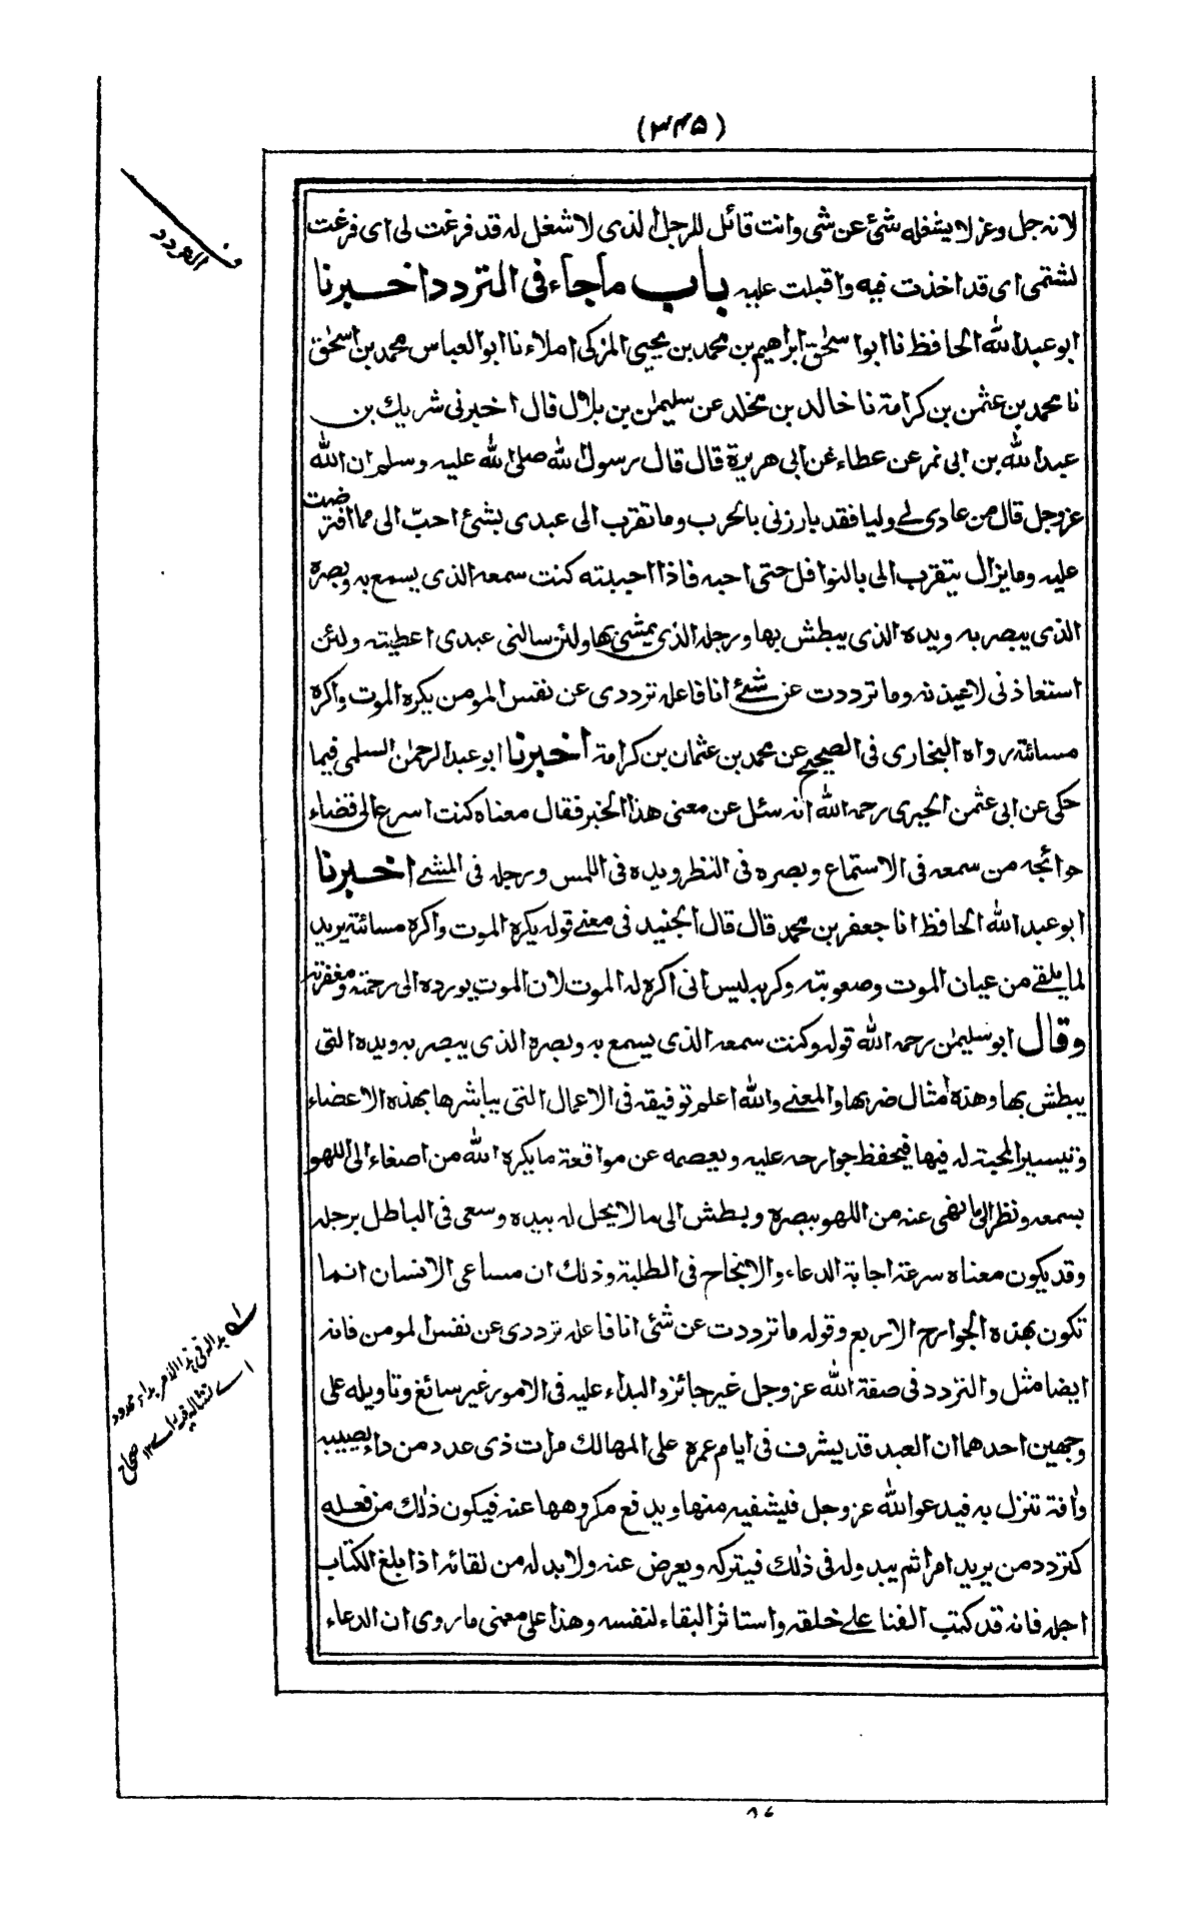 (۳۴۵)
لانه جل وعز لا يشغله شئ عن شئ وانت قائل للرجل الذى لا شغل له قد فرغت لى اى فرغت
لشتمى اى قد اخذت فيه واقبلت عليه باب ماجاء فى التردد اخبرنا
ابو عبد الله الحافظ نا ابو اسحٰق ابراهيم بن محمد بن يحيى المزكى املاء نا ابو العباس محمد بن اسحٰق
نا محمد بن عثمن بن كرامة نا خالد بن مخلد عن سليمٰن بن بلال قال اخبرنى شريك بن
عبد الله بن ابى نمر عن عطاء عن ابى هريرة قال قال رسول الله صلى الله عليه وسلم ان الله
عزوجل قال من عادى لے وليا فقد بارزنى بالحرب وما تقرب الى عبدى بشئ احبّ الى مما افترضت
عليه وما يزال يتقرب الى بالنوافل حتى احبه فاذا احببته كنت سمعه الذى يسمع به وبصره
الذى يبصر به ويده الذى يبطش بها ورجله الذى يمشى بها ولئن سالنى عبدى اعطيته ولئن
استعاذنى لاعيذنه وما ترددت عن شئ انا فاعله ترددى عن نفس المومن يكره الموت واكره
مسائته رواه البخارى فى الصحيح عن محمد بن عثمان بن كرامة اخبرنا ابو عبد الرحمٰن السلمى فيما
حكى عن ابى عثمن الحيرى رحمه الله انه سئل عن معنى هذا الخبر فقال معناه كنت اسرع الى قضاء
حوائجه من سمعه فى الاستماع وبصره فى النظر ويده فى اللمس ورجله فى المشے اخبرنا
ابو عبد الله الحافظ انا جعفر بن محمد قال قال الجنيد فى معنے قوله يكره الموت واكره مسائته يريد
لما يلقے من عيان الموت وصعوبته وكربه ليس انى اكره له الموت لان الموت يورده الى رحمته ومغفرته
وقال ابو سليمٰن رحمه الله قوله وكنت سمعه الذى يسمع به وبصره الذى يبصر به ويده التى
يبطش بها وهذه امثال ضربها والمعنے والله اعلم توفيقه فى الاعمال التى يباشرها بهذه الاعضاء
وتيسير المحبة له فيها فيحفظ جوارحه عليه ويعصمه عن مواقعة ما يكره الله من اصغاء الى اللهو
بسمعه ونظر الى ما نهى عنه من اللهو ببصره وبطش الى ما لا يحل له بيده وسعى فى الباطل برجله
وقد يكون معناه سرعة اجابة الدعاء والانجاح فى الطلبة وذلك ان مساعى الانسان انما
تكون بهذه الجوارح الاربع وقوله ما ترددت عن شئ انا فاعله ترددى عن نفس المومن فانه
ايضا مثل والتردد فى صفة الله عزوجل غير جائز والبداء عليه فى الامور غير سائغ وتاويله على
وجهين احدهما ان العبد قد يشرف فى ايام عمره على المهالك مرات ذى عدد من داء يصيبه
وافة تنزل به فيدعو الله عزوجل فيشفيه منها ويدفع مكروهها عنه فيكون ذلك من فعله
كتردد من يريد امرا ثم يبدو له فى ذلك فيتركه ويعرض عنه ولا بد له من لقائه اذا بلغ الكتاب
اجله فانه قد كتب الفنا علے خلقه واستاثر البقاء لنفسه وهذا على معنى ما روى ان الدعاء
التردد
بدا له فى هذا الامر بداء ممدود
صحاح